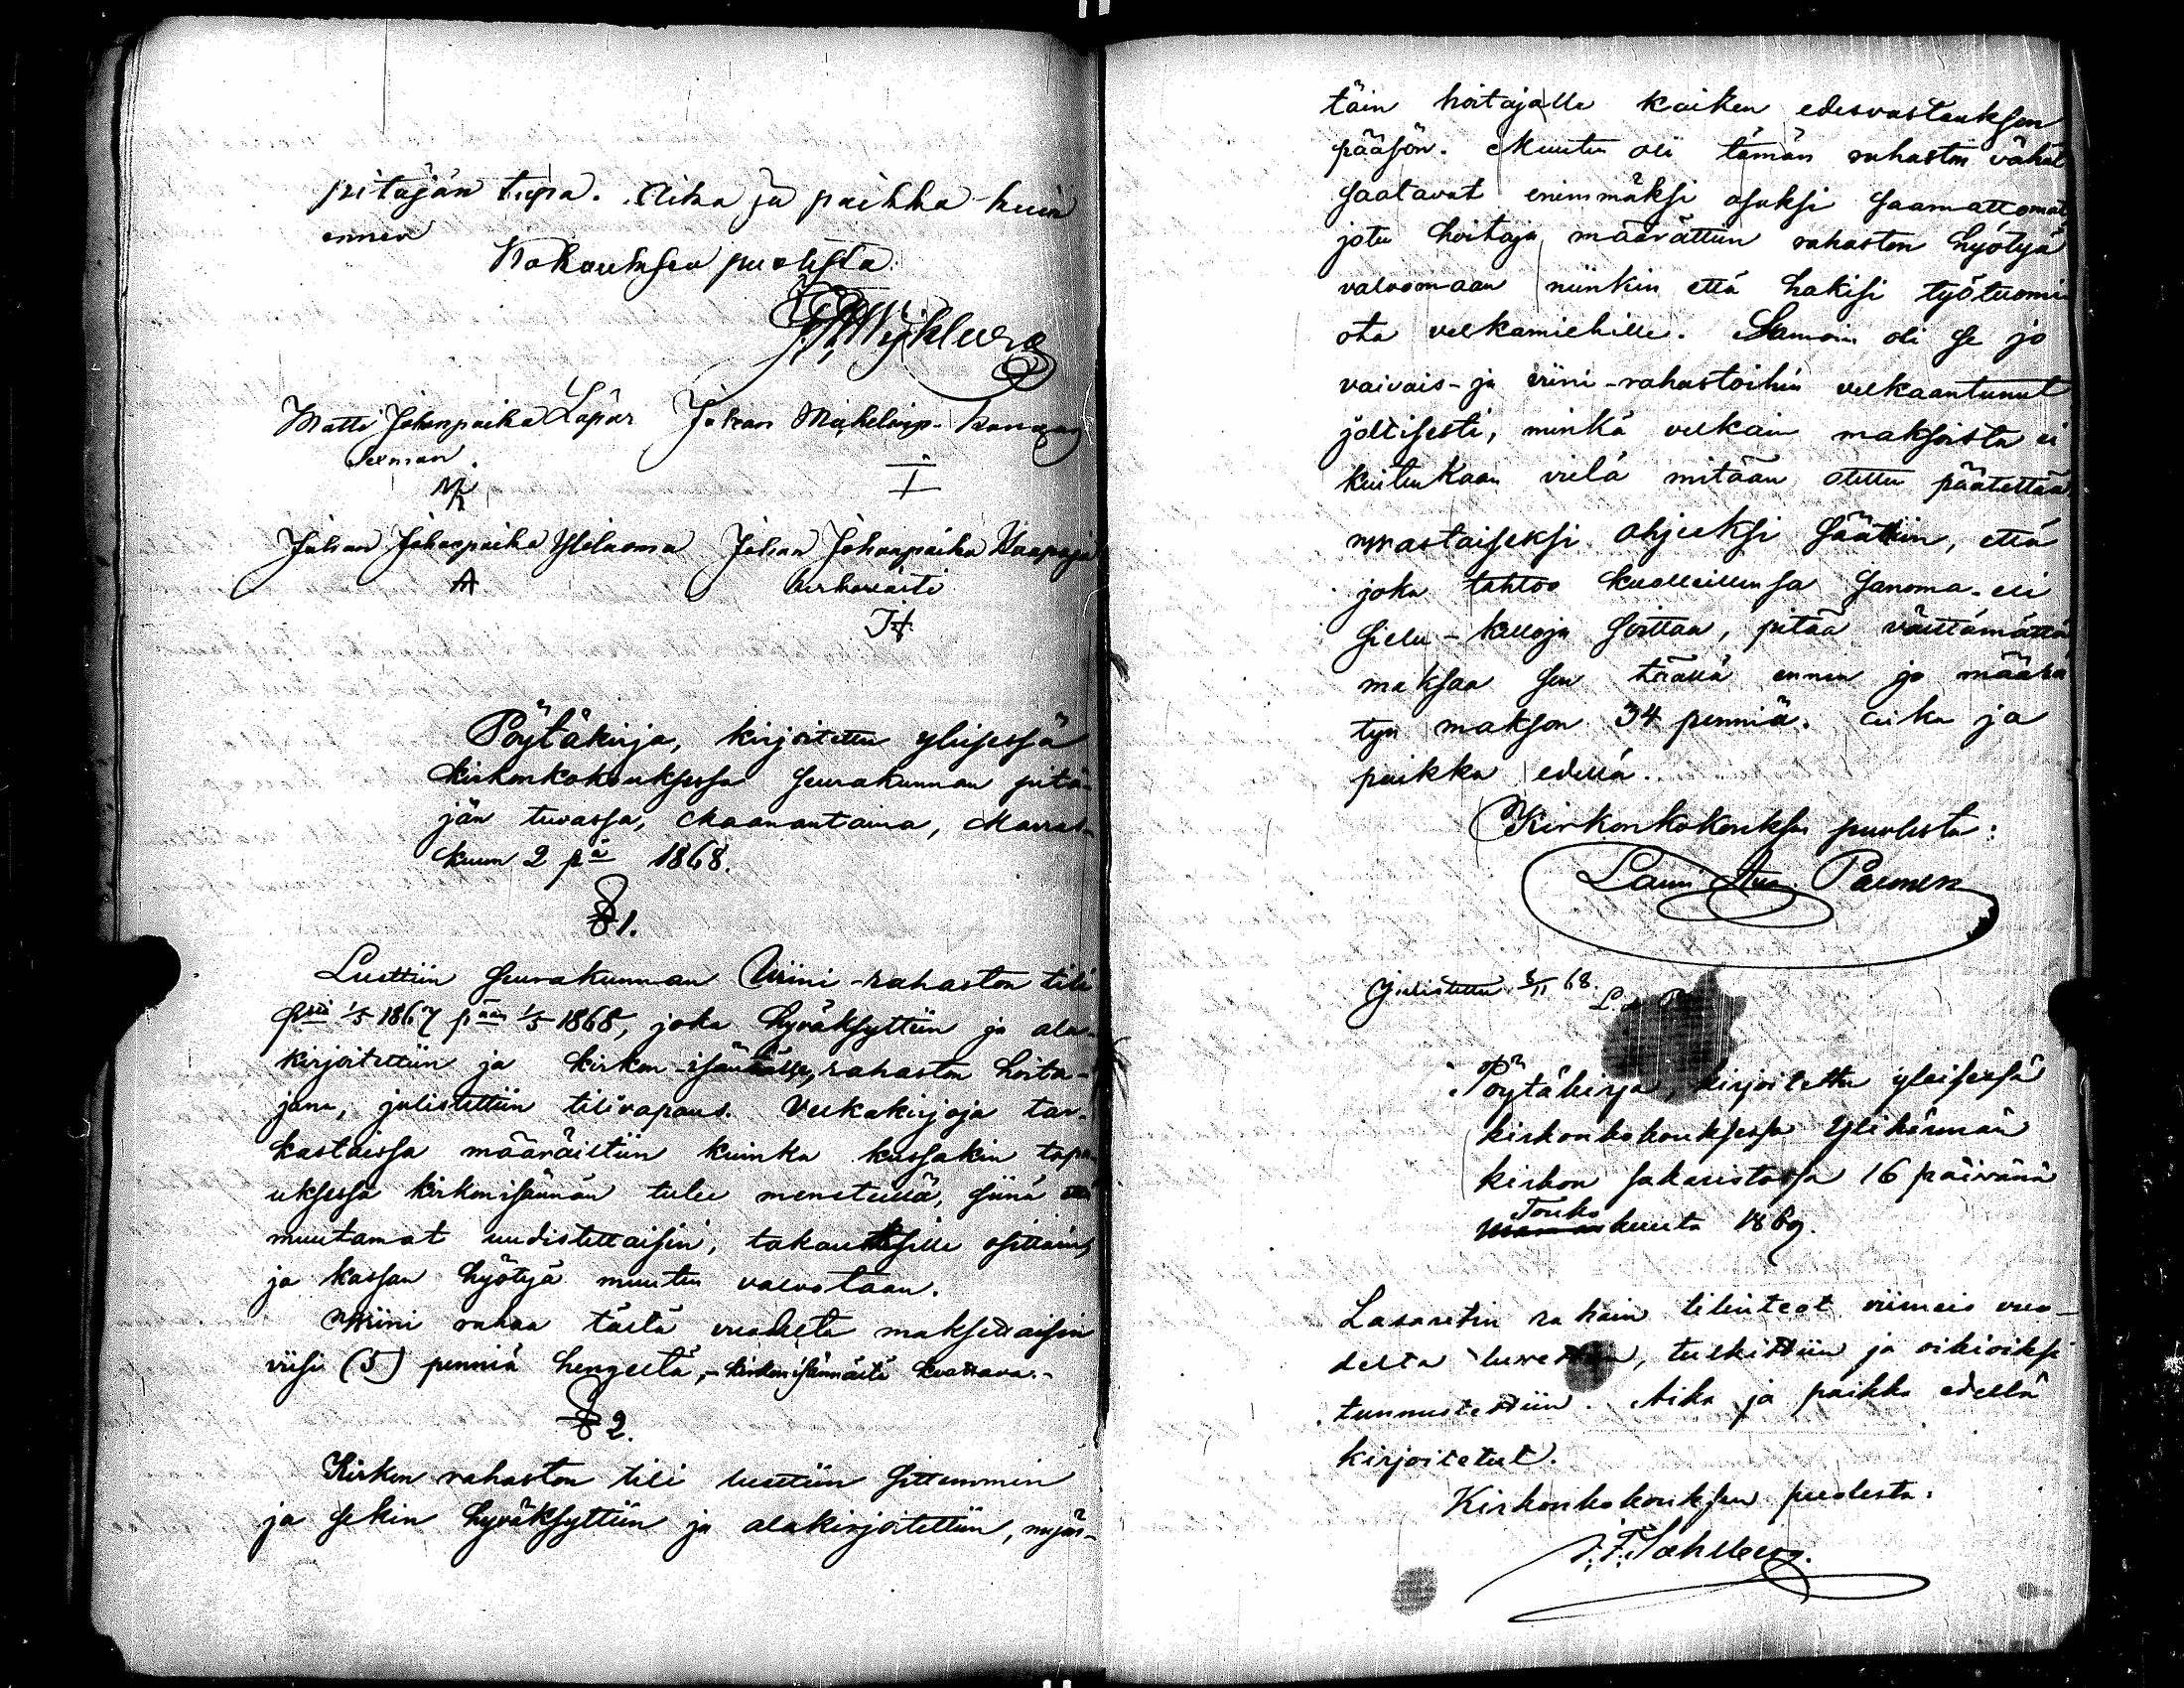 pitäjän tupa. Aika ja paikka kuin
ennen
Kokouksen puolesta:
Matti Johanpoika Lapar Johan Michelinp.
Johan Johanpoika Yliluoma Johan Johanpoika Kaapaja
A
Pöytäkirja, kirjoitettu yleisessä
kirkonkokouksessa seurakunnan pitä-
jän tuvassa, Maanantaina, Marras-
kuun 2 pä 1868.
§ 1.
Luettiin seurakunnan Wiini-rahaston tili
1/5 1867 1/5 1868, joka hyväksyttiin ja ala-
kirjoitettiin ja kirkon-isännälle, rahaston hoita-
jana, julistettiin tilivapaus. Velkakirjoja tar-
kastaissa määräistiin kuinka kussakin tapa
uksessa kirkonisännän tulee menetellä, siinä että
muutamat uudistettaisiin, takauksille osittain,
ja kassan hyötyä muuten valvotaan.
Wiini rahaa tästä vuodesta maksettaisiin
viisi (5) penniä hengeltä, - kirkonisännältä koottava.-
§ 2.
Kirkon rahaston tili luettiin sittemmin
ja sekin hyväksyttiin ja alakirjoitettiin, myös-
täin hoitajalle kaiken edesvastauksen
pääsön. Muuten oli tämän rahaston vähät
saatavat enimmäksi osaksi saamattomat,
jotu hoitaja määrättiin rahaston hyötyä
valvomaan niinkin että hakisi työtuomi-
ota velkamiehille. Samoin oli se jo
vaivais- ja viini-rahastoihin velkaantunut
joltisesti, minkä velkain maksoista ei
kuitenkaan vielä mitään otettu päätettää
vastaiseksi ohjeeksi säätiin, että
joka tahtoo kuolleillensa sanoma- eli
sielu-kelloja soittaa, pitää välttämättä
maksaa sen täällä ennen jo määrä
tyn makson 34 penniä. Aika ja
paikka edellä.
Kirkonkokouksen puolesta:
Lauri Aug. Palmen
Julistettu 8/11 68.
L. A. P
Pöytäkirja, kirjoitettu yleisessä
kirkonkokouksessa Ylihärmän
kirkon sakaristossa 16 päivänä
Touko
kuuta 1869.
Lasaretin rahain tilinteot viimeis vuo-
delta luvettiin, tutkittiin ja oikioiksi
tunnustettiin. Aika ja paikka edellä
kirjoitetut.
Kirkonkokouksen puolesta:
J. F. Sahlberg.